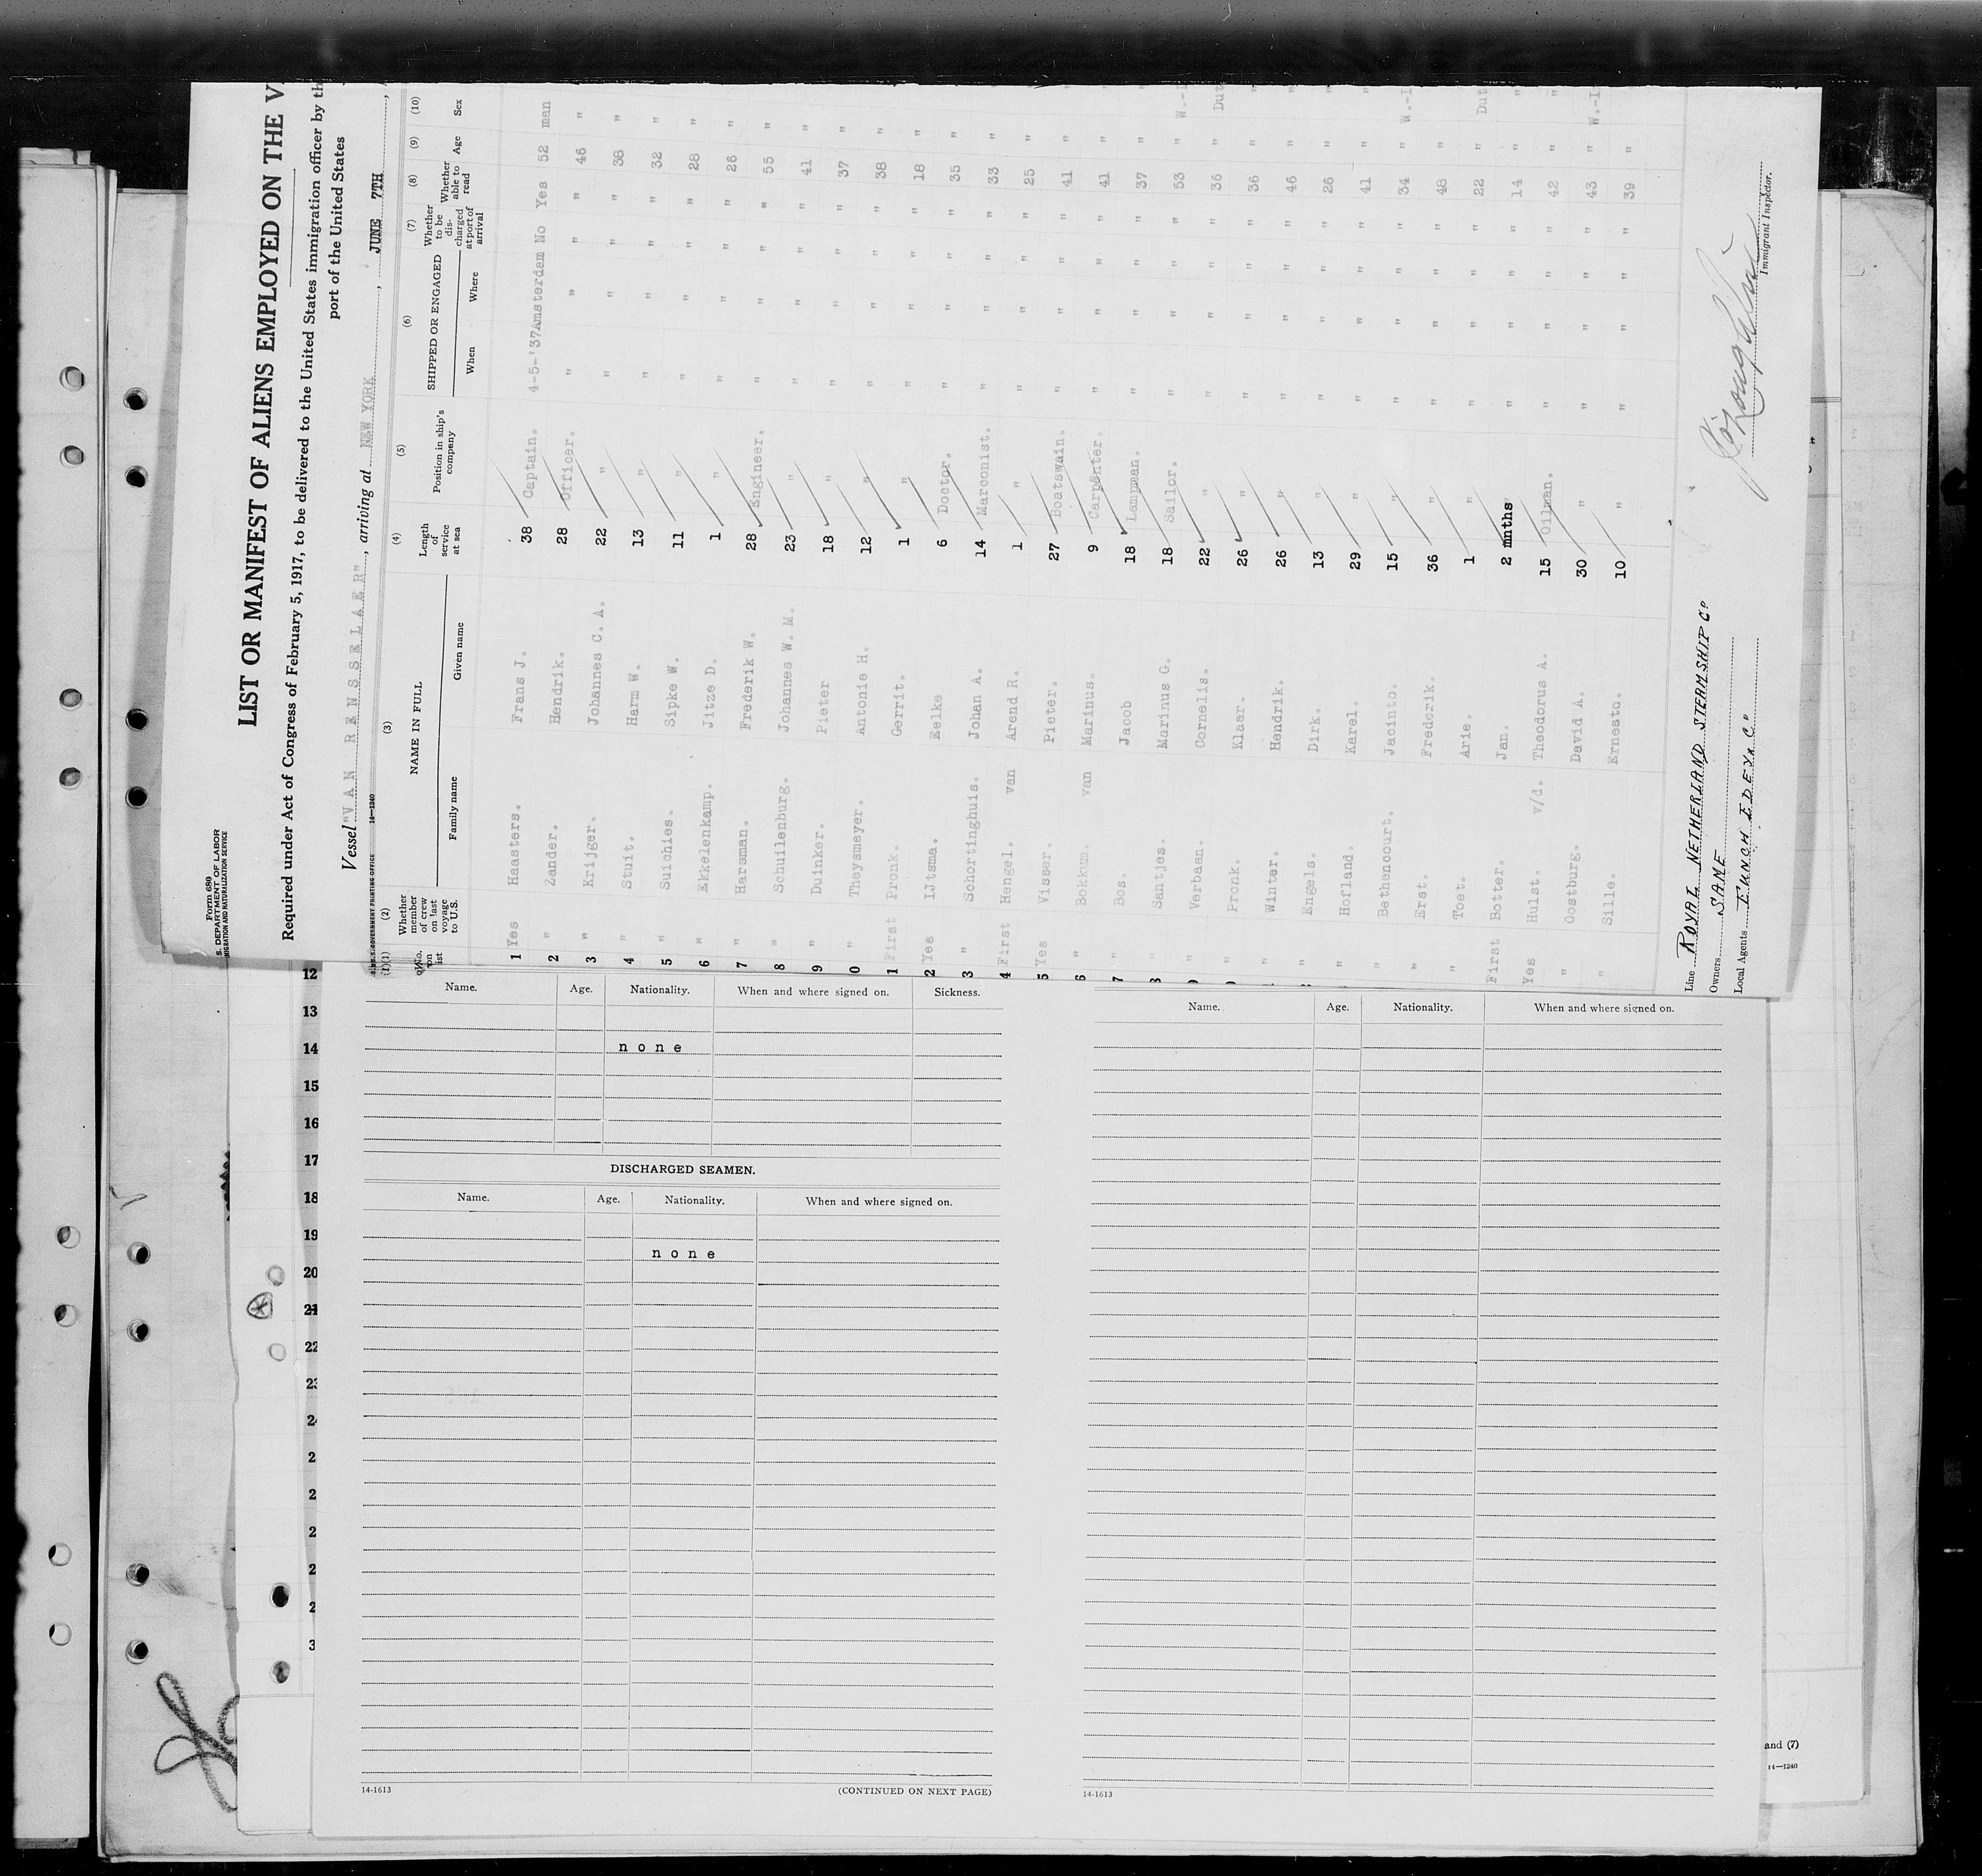 Form 680
S. DEPARTMENT OF LABOR
MIGRATION AND NATURALIZATION SERVICE
LIST OR MANIFEST OF ALIENS EMPLOYED ON THE V
Required under Act of Congress of February 5, 1917, to be delivered to the United States immigration officer by th
port of the United States
Vessel "VAN RENSSELAER", arriving at NEW YORK, JUNE 7TH,
U.S. GOVERNMENT PRINTING OFFICE 14—1240
(1) (2) (3) (4) (5) (6) (7) (8) (9) (10)
No. on list Whether member of crew on last voyage to U.S. NAME IN FULL Length of service at sea Position in ship's company SHIPPED OR ENGAGED Whether to be discharged at port of arrival Whether able to read Age Sex
Family name Given name When Where
1 Yes Haasters. Frans J. 38 Captain. 4-5-'37 Amsterdam No Yes 52 man
2 " Zander. Hendrik. 28 Officer. " " " " 46 "
3 " Krijger. Johannes C. A. 22 " " " " " 38 "
4 " Stuit. Harm W. 13 " " " " " 32 "
5 " Suichies. Sipke W. 11 " " " " " 28 "
6 " Ekkelenkamp. Jitze D. 1 " " " " " 26 "
7 " Harsman. Frederik W. 28 Engineer. " " " " 55 "
8 " Schuilenburg. Johannes W. M. 23 " " " " " 41 "
9 " Duinker. Pieter 18 " " " " " 37 "
0 " Theysmeyer. Antonie H. 12 " " " " " 38 "
1 First Pronk. Gerrit. 1 " " " " " 18 "
2 Yes IJtsma. Eelke 6 Doctor. " " " " 35 "
3 " Schortinghuis. Johan A. 14 Marconist. " " " " 33 "
4 First Hengel. van Arend R. 1 " " " " " 25 "
5 Yes Visser. Pieter. 27 Boatswain. " " " " 41 " "
6 " Bokkum. van Marinus. 9 Carpenter. " " " " 41 " "
7 " Bos. Jacob 18 Lampman. " " " " 37 " "
8 " Santjes. Marinus G. 18 Sailor. " " " " 53 " W.-I
9 " Verbaan. Cornelis. 22 " " " " " 36 " Dut
" Pronk. Klaar. 26 " " " " " 36 " "
" Winter. Hendrik. 26 " " " " " 46 " "
" Engels. Dirk. 13 " " " " " 26 " "
" Hofland. Karel. 29 " " " " " 41 " "
" Bethencourt. Jacinto. 15 " " " " " 34 " W.-I
" Erst. Frederik. 36 " " " " " 48 " "
" Toet. Arie. 1 " " " " " 22 " Dut
First Botter. Jan. 2 mnths " " " " 14 " "
Yes Hulst. v/d. Theodorus A. 15 Oilman. " " " " 42 " "
" Oostburg. David A. 30 " " " " " 43 " W.-I
" Sille. Ernesto. 10 " " " " " 39 "
Line ROYAL NETHERLAND STEAMSHIP Co
Owners SAME
Local Agents FUNCH EDEY& Co
Immigrant Inspector.
12
13
14
15
16
17
18
19
20
21
22
Name. Age. Nationality. When and where signed on. Sickness.
none
DISCHARGED SEAMEN.
Name. Age. Nationality. When and where signed on.
none
14-1613
(CONTINUED ON NEXT PAGE)
Name. Age. Nationality. When and where signed on.
14-1613
and (7)
14—1240